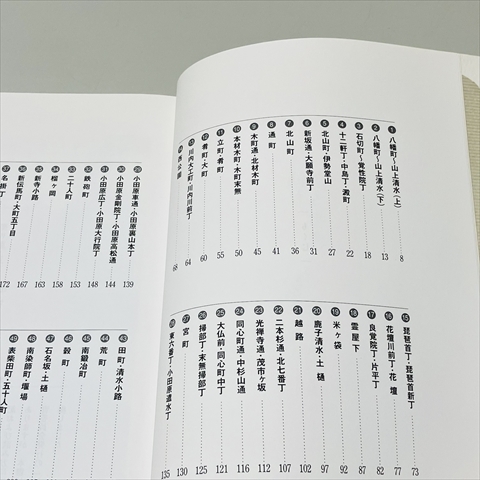 ① 八幡町〜山上清水（上） 8
② 八幡町〜山上清水（下） 13
③ 石切町〜覚性院丁 18
④ 十二軒丁・中島丁・澱町 22
⑤ 北山町・伊勢堂山 27
⑥ 新坂通・大願寺前丁 31
⑦ 北山町 36
⑧ 通町 41
⑨ 木町通・北材木町 45
⑩ 本材木町・木町末無 50
⑪ 立町・肴町 55
⑫ 肴町・大町 60
⑬ 川内大工町・川内川前丁 64
⑭ 西公園 68
⑮ 琵琶首丁・琵琶首新丁 73
⑯ 花壇川前丁・花壇 77
⑰ 良覚院丁・片平丁 82
⑱ 霊屋下 87
⑲ 米ヶ袋 92
⑳ 鹿子清水・土樋 97
㉑ 越路 102
㉒ 二本杉通・北七番丁 107
㉓ 光禅寺通・茂市ヶ坂 112
㉔ 同心町通・中杉山通 116
㉕ 大仏前・同心町中丁 121
㉖ 掃部丁・末無掃部丁 125
㉗ 宮町 130
㉘ 東六番丁・小田原遣水丁 135
㉙ 小田原車通・小田原裏山本丁 139
㉚ 小田原金剛院丁・小田原高松通 144
㉛ 小田原広丁・小田原大行院丁 148
㉜ 鉄砲町 153
㉝ 二十人町 158
㉞ 榴ヶ岡 158
㉟ 新寺小路 163
㊱ 新伝馬町・大町五丁目 167
㊲ 名掛丁 172
㊸ 田町・清水小路
㊹ 荒町
㊺ 南鍛冶町
㊻ 穀町
㊼ 石名坂・土樋
㊽ 南染師町・堰場
㊾ 表柴田町・五十人町